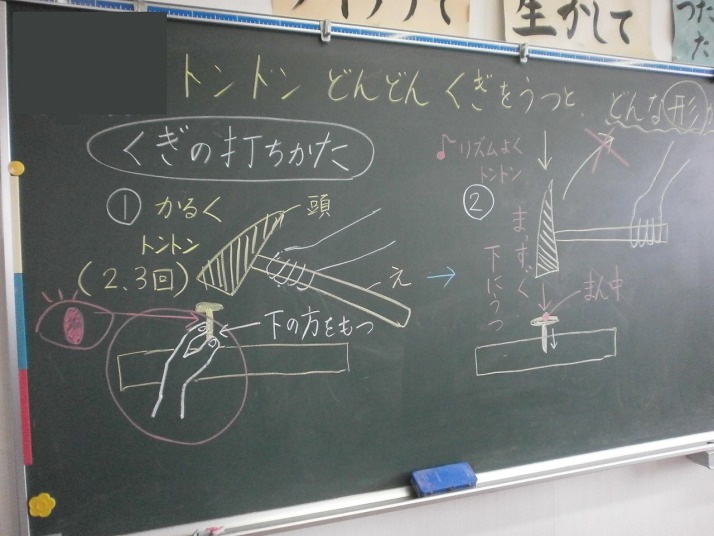 生かして
トンドン どんどん くぎをうつと、どんな形
くぎの打ちかた
① かるく
トントン
(2.3回)
頭
え
下の方をもつ
→
②
♪リズムよく
トントン
まっすぐ
下にうつ
まん中